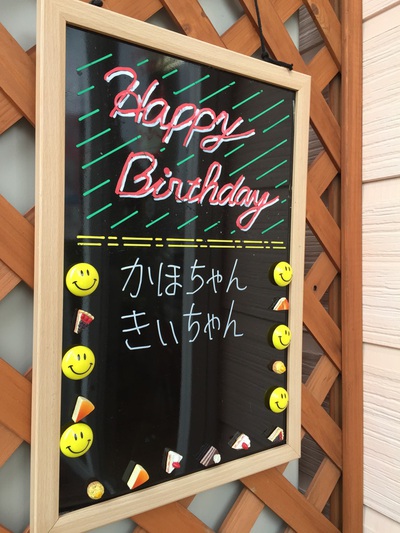 Happy
Birthday
かほちゃん
きいちゃん